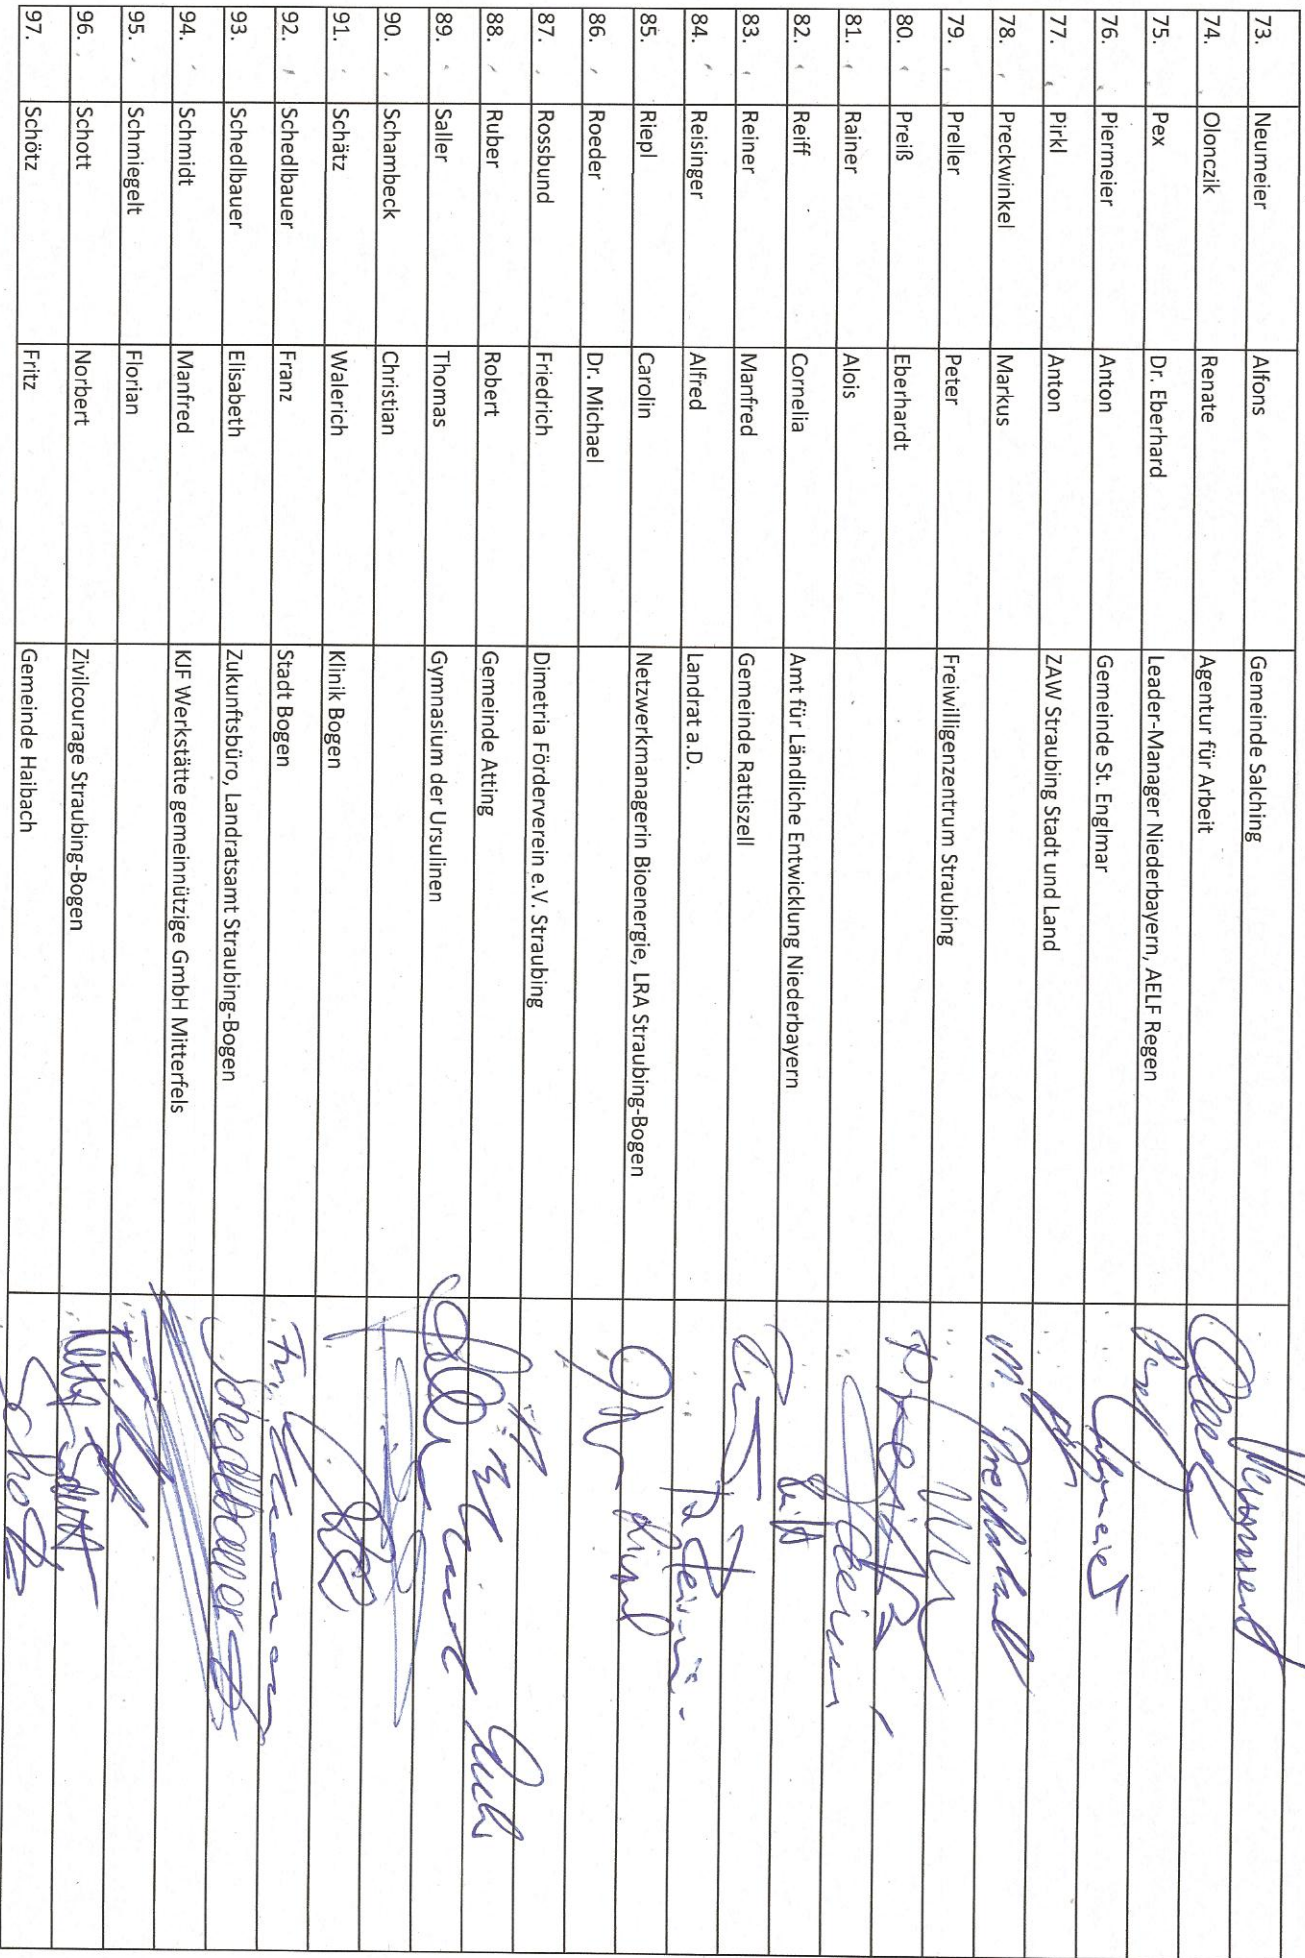 73. Neumeier Alfons Gemeinde Salching
74. Olonczik Renate Agentur für Arbeit
75. Pex Dr. Eberhard Leader-Manager Niederbayern, AELF Regen
76. Piermeier Anton Gemeinde St. Englmar
77. Pirkl Anton ZAW Straubing Stadt und Land
78. Preckwinkel Markus M.
79. Preller Peter Freiwilligenzentrum Straubing
80. Preiß Eberhardt
81. Rainer Alois
82. Reiff Cornelia Amt für Ländliche Entwicklung Niederbayern Reiff
83. Reiner Manfred Gemeinde Rattiszell
84. Reisinger Alfred Landrat a.D.
85. Riepl Carolin Netzwerkmanagerin Bioenergie, LRA Straubing-Bogen
86. Roeder Dr. Michael
87. Rossbund Friedrich Dimetria Förderverein e.V. Straubing
88. Ruber Robert Gemeinde Atting
89. Saller Thomas Gymnasium der Ursulinen
90. Schambeck Christian
91. Schätz Walerich Klinik Bogen
92. Schedlbauer Franz Stadt Bogen
93. Schedlbauer Elisabeth Zukunftsbüro, Landratsamt Straubing-Bogen Schedlbauer
94. Schmidt Manfred KJF Werkstätte gemeinnützige GmbH Mitterfels
95. Schmiegelt Florian
96. Schott Norbert Zivilcourage Straubing-Bogen Schott
97. Schötz Fritz Gemeinde Haibach Schötz